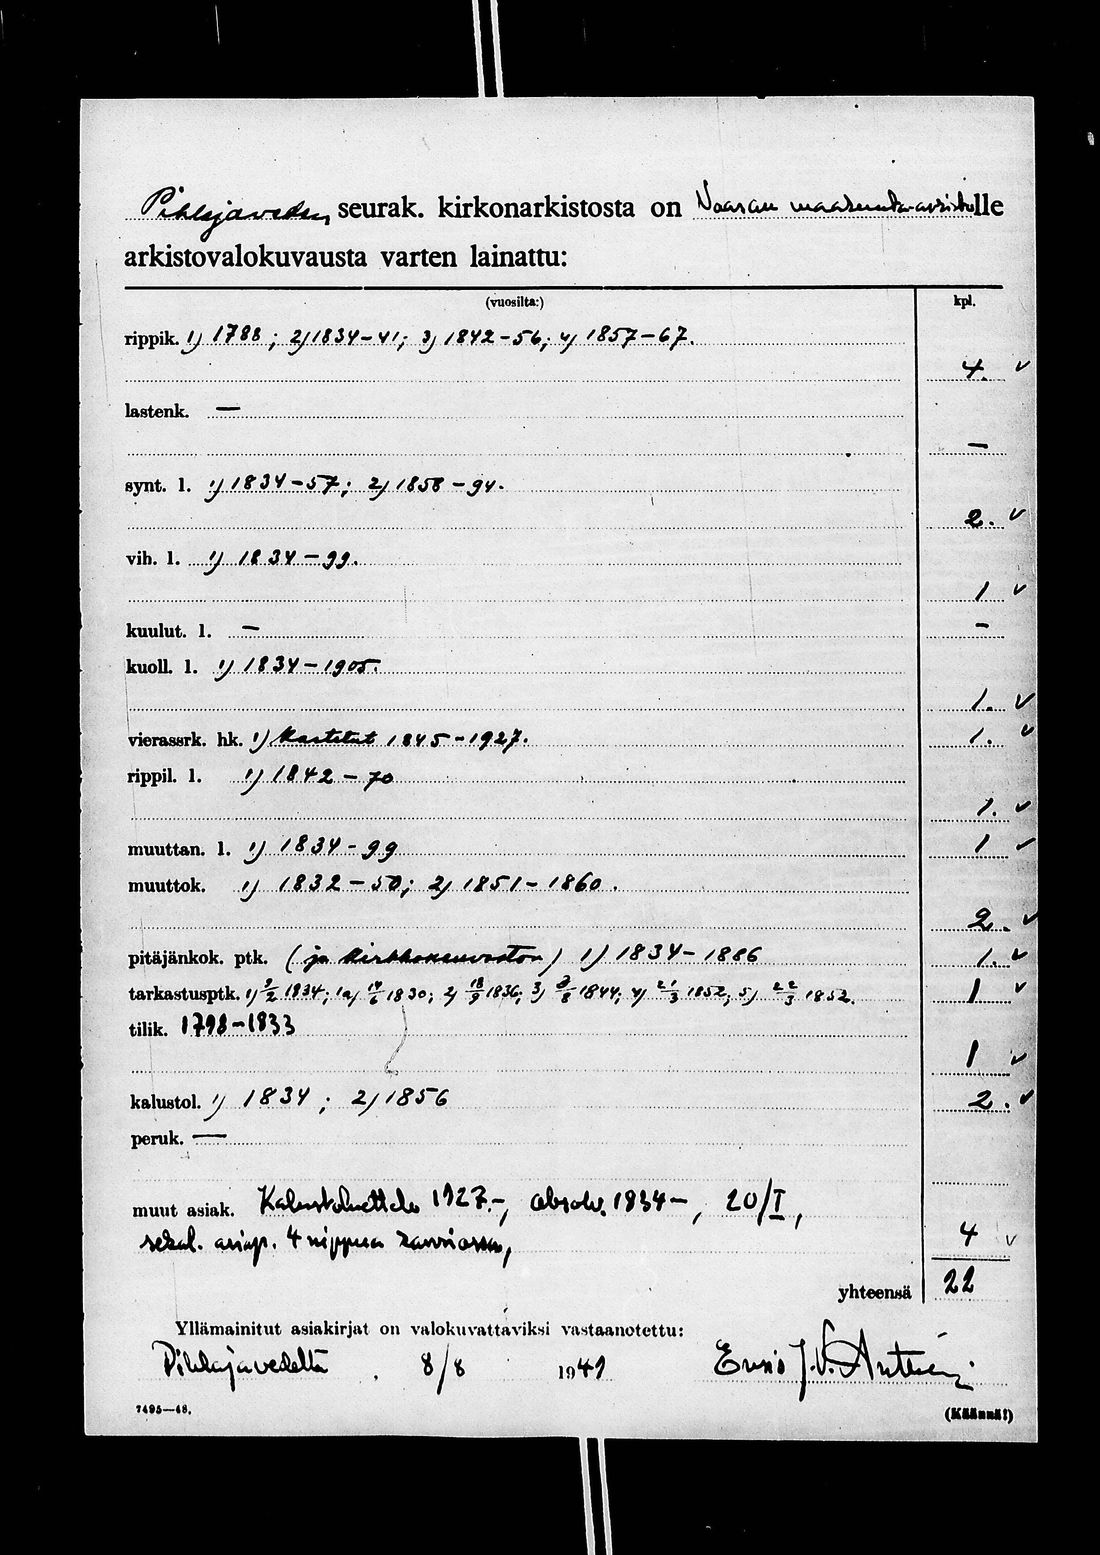 Pihlajaveden seurak. kirkonarkistosta on Vaasan maakunta-arkistolle
arkistovalokuvausta varten lainattu:
(vuosilta:) kpl.
rippik. 1) 1788; 2) 1834-41; 3) 1842-56; 4) 1857-67.
4. ✓
lastenk. —
—
synt. l. 1) 1834-57; 2) 1858-94.
2. ✓
vih. l. 1) 1834-99.
1 ✓
kuulut. l. — —
kuoll. l. 1) 1834-1905.
1. ✓
vierassrk. hk. 1) Kastetut 1845-1927. 1. ✓
rippil. l. 1) 1842-70
1. ✓
muuttan. l. 1) 1834-99 1 ✓
muuttok. 1) 1832-50; 2) 1851-1860.
2. ✓
pitäjänkok. ptk. (ja kirkkoneuvoston) 1) 1834-1886 1. ✓
tarkastusptk. 1) 9/2 1834; 1a) 14/6 1830; 2) 18/9 1836; 3) 8/8 1844; 4) 21/3 1852; 5) 22/3 1852. 1 ✓
tilik. 1798-1833
1 ✓
kalustol. 1) 1834; 2) 1856 2. ✓
peruk. —
muut asiak. Kalustoluettelo 1927-, absolv. 1834-, 20/I,
sekal. asiap. 4 nippua 4 ✓
yhteensä 22
Yllämainitut asiakirjat on valokuvattaviksi vastaanotettu:
Pihlajavedeltä 8/8 1949 J.V.
7495—48. (Käännä!)